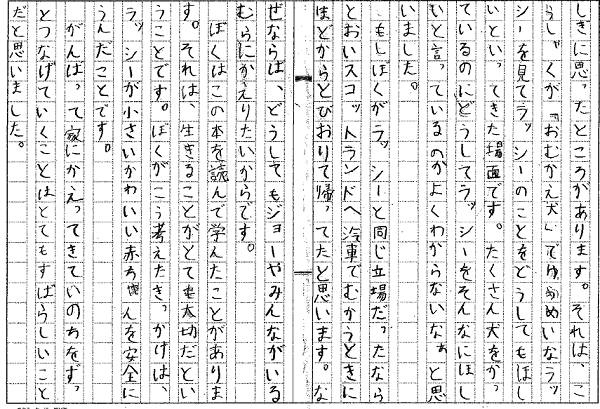 しぎに思ったところがあります。それは、こ
うしゃくが『おむかえ犬』でゆうめいなラッ
シーを見てラッシーのことをどうしてもほし
いといってきた場面です。たくさん犬をかっ
ているのにどうしてラッシーをそんなにほし
いと言っているのかよくわからないなぁと思
いました。
もしぼくがラッシーと同じ立場だったなら
とおいスコットランドへ汽車でむかうときに
まどからとびおりて帰ってたと思います。な
ぜならば、どうしてもジョーやみんながいる
むらにかえりたいからです。
ぼくはこの本を読んで学んたことがありま
す。それは、生きることがとても大切だとい
うことです。ぼくがこう考えたきっかけは、
ラッシーが小さいかわいい赤ちゃんを安全に
うんだことです。
がんばって家にかえってきていのちをずっ
とつなげていくことはとてもすばらしいこと
だと思いました。